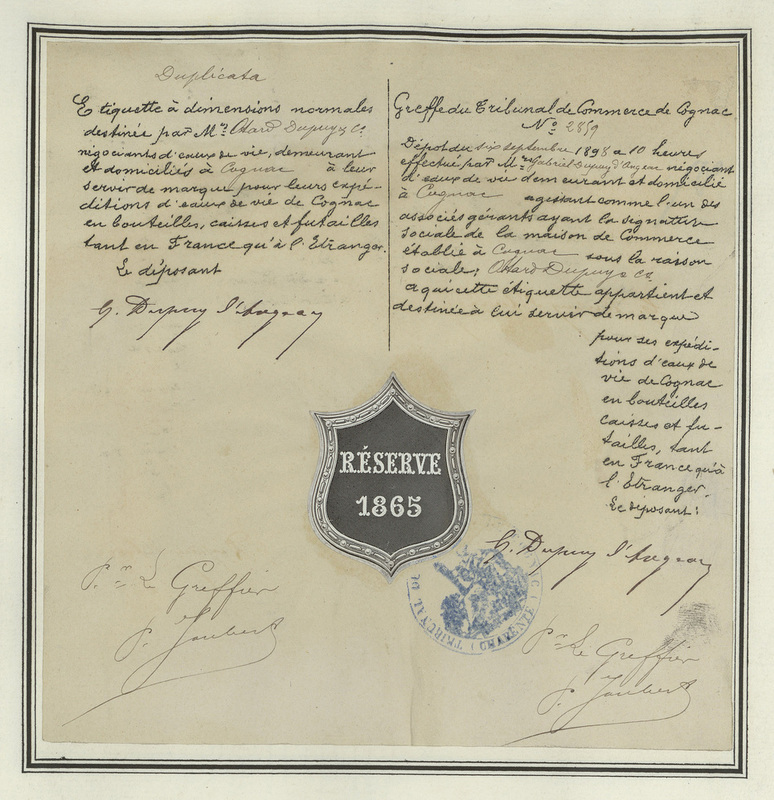 Duplicata
Etiquette à dimensions normales
destinée par M.rs Otard Dupuy & Co
négociants d'eaux de vie, demeurant
et domiciliés à Cognac à leur
servir de marque pour leurs expé-
ditions d'eaux de vie de Cognac
en bouteilles, caisses et futailles
tant en France qu'à l'Etranger.
Le déposant
G. Dupuy d'Angeac
Greffe du Tribunal de Commerce de Cognac
No 2859
Dépôt du six septembre 1898 a 10 heures
effectué par Mr Gabriel Dupuy d'Angeac négociant
d'eaux de vie demeurant et domicilié
à Cognac agissant comme l'un des
associés gérants ayant la signature
sociale de la maison de Commerce
établie à Cognac sous la raison
sociale; Otard Dupuy & Co
a qui cette étiquette appartient et
destinée à lui servir de marque
pour ses expédi-
tions d'eaux de
vie de Cognac
en bouteilles
caisses et fu-
tailles, tant
en France qu'à
l'Etranger.
Le déposant:
G. Dupuy d'Angeac
RÉSERVE
1865
P.r Le Greffier
P. Joubert
TRIBUNAL DE
P.r Le Greffier
P. Joubert